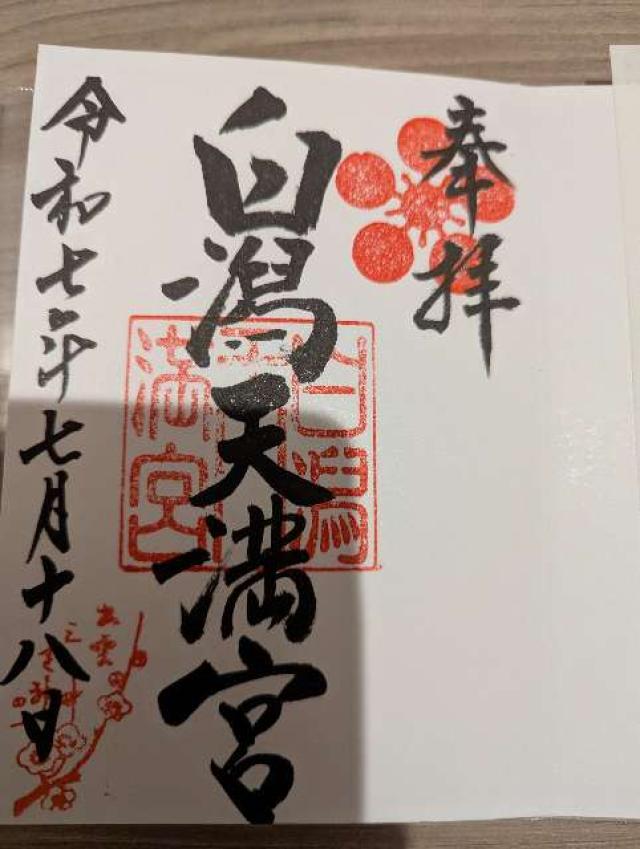 奉拝
白潟天満宮
白潟天満宮
令和七年七月十八日
出雲